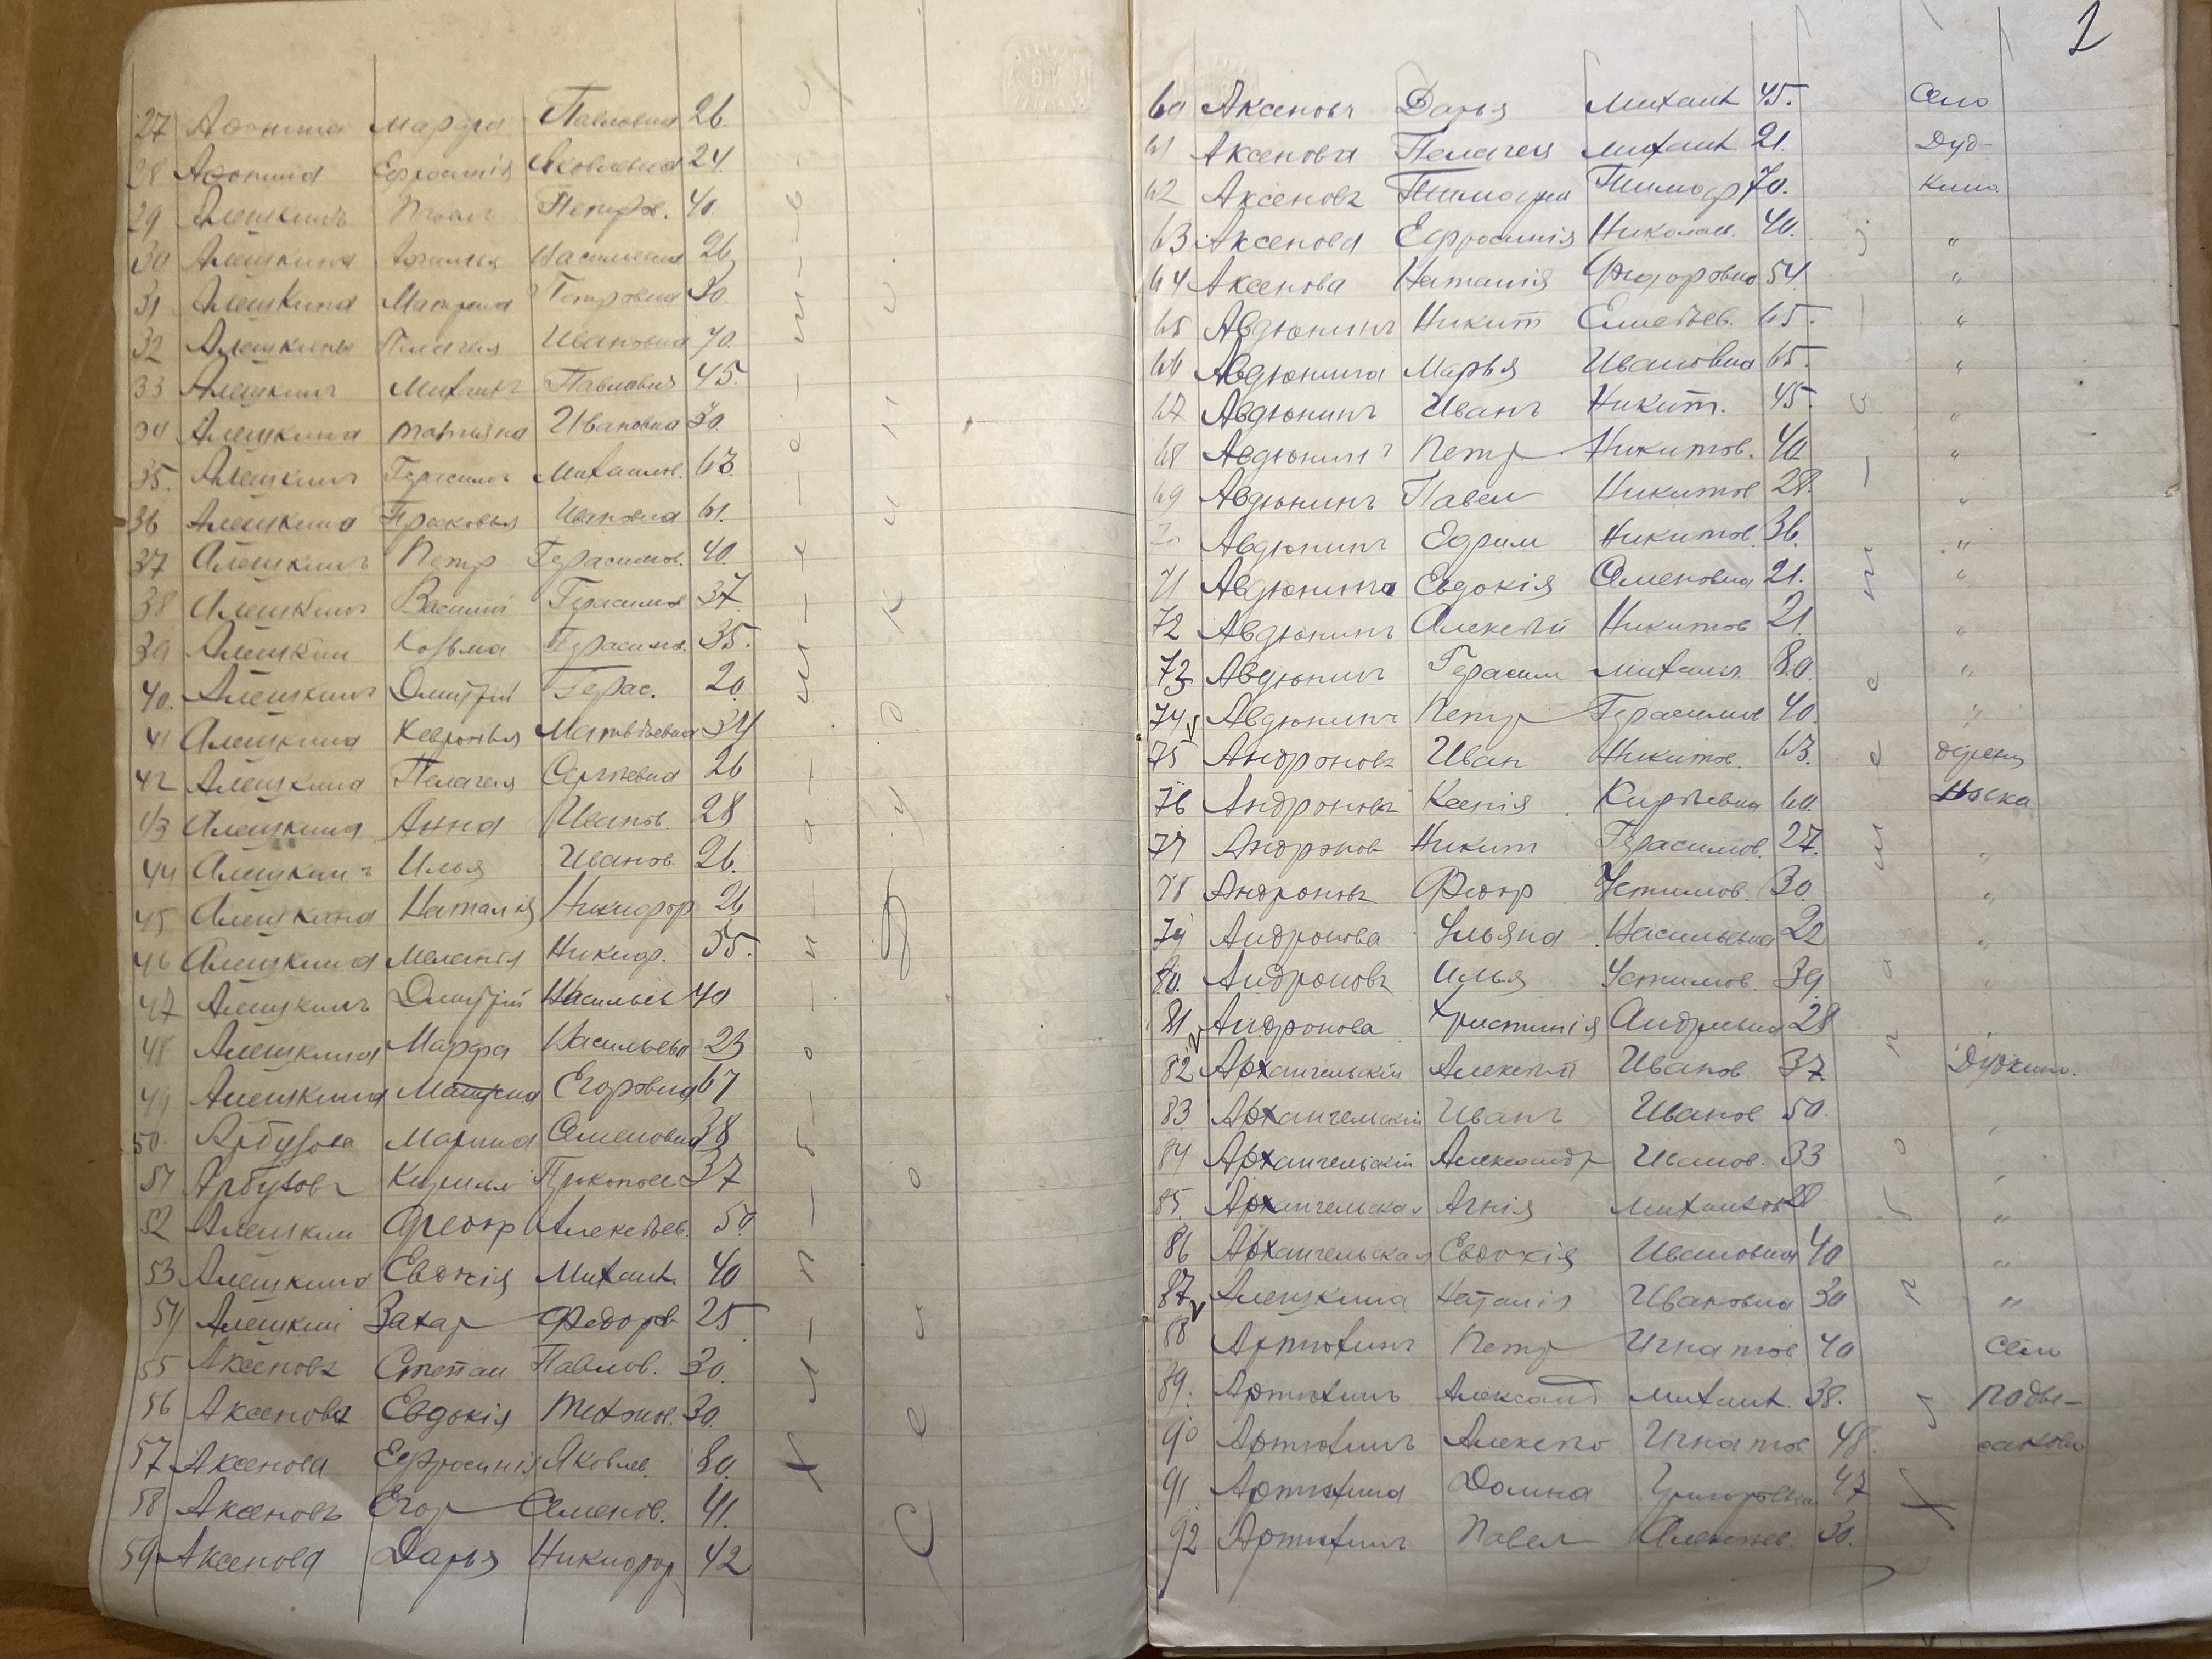 27 Афонина Марфа Павловна 26.
28 Афонина Ефросинія Яковлевна 24.
29 Алешкинъ Иванъ Петров. 40.
30 Алешкина Васильевна 26
31 Алешкина Матрена Петровна 30.
32 Алешкина Пелагея Ивановна 70.
33 Алешкинъ Михаилъ Павловъ 45.
34 Алешкина Татьяна Ивановна 30.
35. Алешкинъ Герасимъ Михаилов. 63.
36 Алешкина Прасковья Ивановна 61.
37 Алешкинъ Петр Герасимов. 40.
38 Алешкинъ Василій Герасимов 37.
39 Алешкин Козьма Герасимов. 35.
40. Алешкинъ Дмитрій Герас. 20.
41 Алешкина Хевронья Матвѣевна 34
42 Алешкина Пелагея Сергѣевна 26
43 Алешкина Анна Иванов. 28
44 Алешкинъ Илья Иванов. 26.
45 Алешкина Наталія Никифор 26
46 Алешкина Меланія Никиф. 55.
47 Алешкинъ Дмитрій Васильев 40
48 Алешкина Марфа Васильевн 23
49 Алешкина Матрена Егоровна 67
50. Арбузова Марина Семеновна 38
51 Арбузовъ Кирилл Прокопов 37
52 Алешкин Федор Алексѣев. 50.
53 Алешкина Евдокія Михаил. 40
54 Алешкин Захар Федоров 25
55 Аксеновъ Степан Павлов. 30.
56 Аксенова Евдокія Тихонов. 30.
57 Аксенова Ефросинія Яковлев. 80.
58 Аксеновъ Егор Семенов. 41.
59 Аксенова Дарья Никифор 42
Х-л-п-б-о-п-а-ш-е-с-т.
Село Дудкино.
2
60 Аксенова Дарья Михаил 45. Село
61 Аксенова Пелагея Михаил 21. Дуд-
62 Аксеновъ Тимофей Тимоф 70. кино.
63 Аксенова Ефросинія Николаев. 40. "
64 Аксенова Наталія Федоровна 54. "
65 Авдюнинъ Никит Елисѣев. 65. "
66 Авдюнина Марья Ивановна 65. "
67 Авдюнинъ Иванъ Никит. 45. "
68 Авдюнинъ Петр Никитов. 40 "
69 Авдюнинъ Павел Никитов 28. "
Авдюнинъ Ефрим Никитов. 36. "
71 Авдюнина Евдокія Семеновна 21. "
72 Авдюнинъ Алексѣй Никитов 21. "
73 Авдюнинъ Герасим Михаил 80. "
74 Авдюнинъ Петр Герасимов 40. "
75 Андроновъ Иван Никитов. 63. деревн
76 Андронова Ксенія Кирѣевна 60. Няска
77 Андронов Никит Герасимов. 27. "
78 Андроновъ Федор Устимов. 30. "
79 Андронова Ульяна Васильевна 22 "
80. Андроновъ Илья Устимов. 39. "
81 Андронова Христинія Андреевна 28 "
82 Архангельскій Алексѣй Иванов 37. Дудкино.
83 Архангельскій Иванъ Иванов 50. "
84 Архангельскій Александр Иванов. 33 "
85. Архангельская Агнія Михаилов 20 "
86 Архангельская Евдокія Ивановна 40 "
87 Алешкина Наталія Ивановна 30 "
88 Артюхинъ Петр Игнатов 40 Село
89. Артюхинъ Александ Михаил. 38. Подвя-
90 Артюхинъ Алексѣй Игнатов 48.
91 Артюхина Домна Григорьевна 47
92 Артюхинъ Павел Алексѣев. 30.